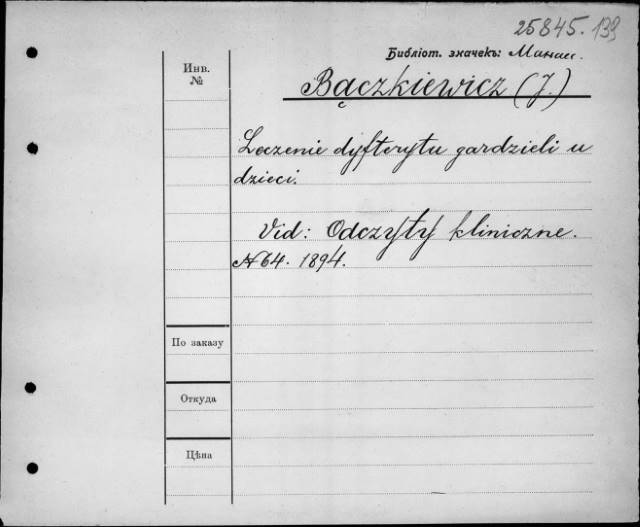 25845. 139
Библіот. значекъ:
Инв.
№
Bączkiewicz (J.)
Leczenie dyfterytu gardzieli u
dzieci.
Vid: Odczyty kliniczne.
№ 64. 1894.
По заказу
Откуда
Цѣна